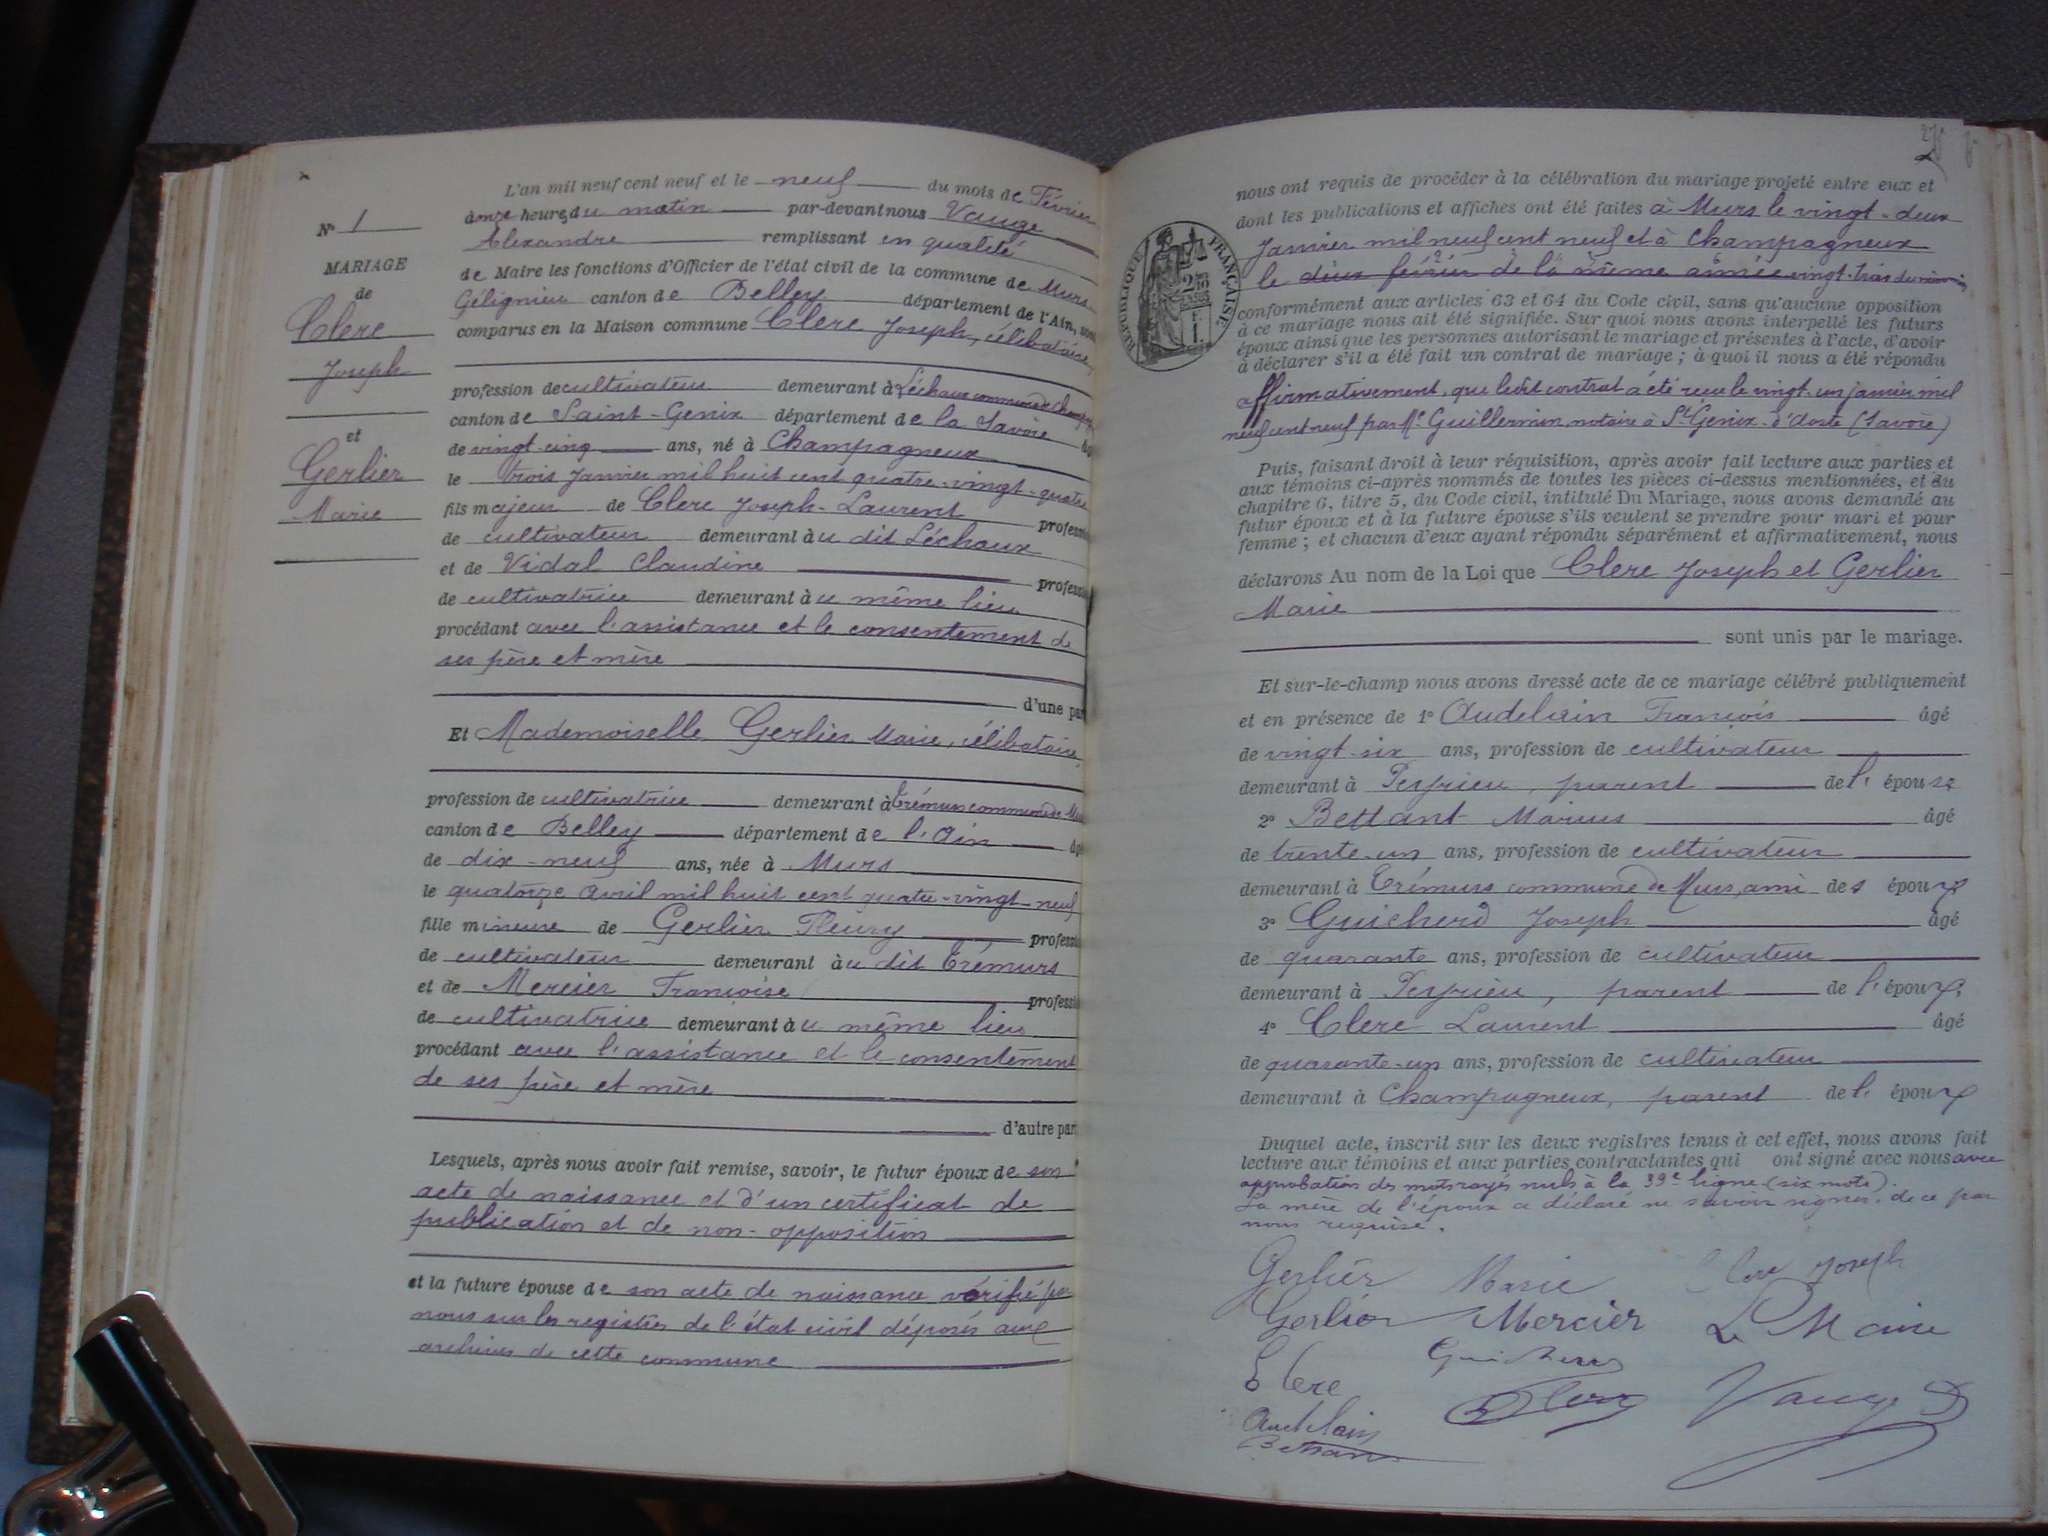 L'an mil neuf cent neuf et le neuf du mois de Février
à onze heures du matin par-devant nous Vauge
Alexandre remplissant en qualité
de Maire les fonctions d'Officier de l'état civil de la commune de Murs
Gélignieu canton de Belley département de l'Ain, sont
comparus en la Maison commune Clerc Joseph, célibataire,
N° 1
MARIAGE
de
Clerc
Joseph
et
Gerlier
Marie
profession de cultivateur demeurant à Léchaux commune de
canton de Saint-Genix département de la Savoie
de vingt-cinq ans, né à Champagneux
le trois Janvier mil huit cent quatre-vingt-quatre
fils majeur de Clerc Joseph-Laurent profession
de cultivateur demeurant au dit Léchaux
et de Vidal Claudine profession
de cultivatrice demeurant au même lieu
procédant avec l'assistance et le consentement de
ses père et mère
d'une part
Et Mademoiselle Gerlier Marie, célibataire,
profession de cultivatrice demeurant à Trémurs commune de Murs
canton de Belley département de l'Ain âgée
de dix-neuf ans, née à Murs
le quatorze avril mil huit cent quatre-vingt-neuf
fille mineure de Gerlier Fleury profession
de cultivateur demeurant au dit Trémurs
et de Mercier Françoise profession
de cultivatrice demeurant au même lieu
procédant avec l'assistance et le consentement
de ses père et mère
d'autre part
Lesquels, après nous avoir fait remise, savoir, le futur époux de son
acte de naissance et d'un certificat de
publication et de non-opposition
et la future épouse de son acte de naissance vérifié par
nous sur les registres de l'état civil déposés aux
archives de cette commune
nous ont requis de procéder à la célébration du mariage projeté entre eux et
dont les publications et affiches ont été faites à Murs le vingt-deux
Janvier mil neuf cent neuf et à Champagneux
le deux février de la même année vingt-trois du
RÉPUBLIQUE FRANÇAISE
conformément aux articles 63 et 64 du Code civil, sans qu'aucune opposition
à ce mariage nous ait été signifiée. Sur quoi nous avons interpellé les futurs
époux ainsi que les personnes autorisant le mariage et présentes à l'acte, d'avoir
à déclarer s'il a été fait un contrat de mariage ; à quoi il nous a été répondu
affirmativement, que ledit contrat a été reçu le vingt-un janvier mil
neuf cent neuf par Me Guillermin, notaire à St Genix-d'Aoste (Savoie)
Puis, faisant droit à leur réquisition, après avoir fait lecture aux parties et
aux témoins ci-après nommés de toutes les pièces ci-dessus mentionnées, et du
chapitre 6, titre 5, du Code civil, intitulé Du Mariage, nous avons demandé au
futur époux et à la future épouse s'ils veulent se prendre pour mari et pour
femme ; et chacun d'eux ayant répondu séparément et affirmativement, nous
déclarons Au nom de la Loi que Clerc Joseph et Gerlier
Marie
sont unis par le mariage.
Et sur-le-champ nous avons dressé acte de ce mariage célébré publiquement
et en présence de 1° Audelain François âgé
de vingt-six ans, profession de cultivateur
demeurant à Peyrieu, parent de l'épouse
2° Bettant Marius âgé
de trente-un ans, profession de cultivateur
demeurant à Trémurs commune de Murs, ami des époux
3° Guicherd Joseph âgé
de quarante ans, profession de cultivateur
demeurant à Peyrieu, parent de l'époux,
4° Clerc Laurent âgé
de quarante-un ans, profession de cultivateur
demeurant à Champagneux, parent de l'époux
Duquel acte, inscrit sur les deux registres tenus à cet effet, nous avons fait
lecture aux témoins et aux parties contractantes qui ont signé avec nous avec
approbation des mots rayés nuls à la 39e ligne (six mots).
La mère de l'époux a déclaré ne savoir signer, de ce par
nous requise.
Gerlier Marie Clerc Joseph
Gerlier Mercier Le Maire
Clerc Guicherd
Clerc Vauge
Audelain
Bettant